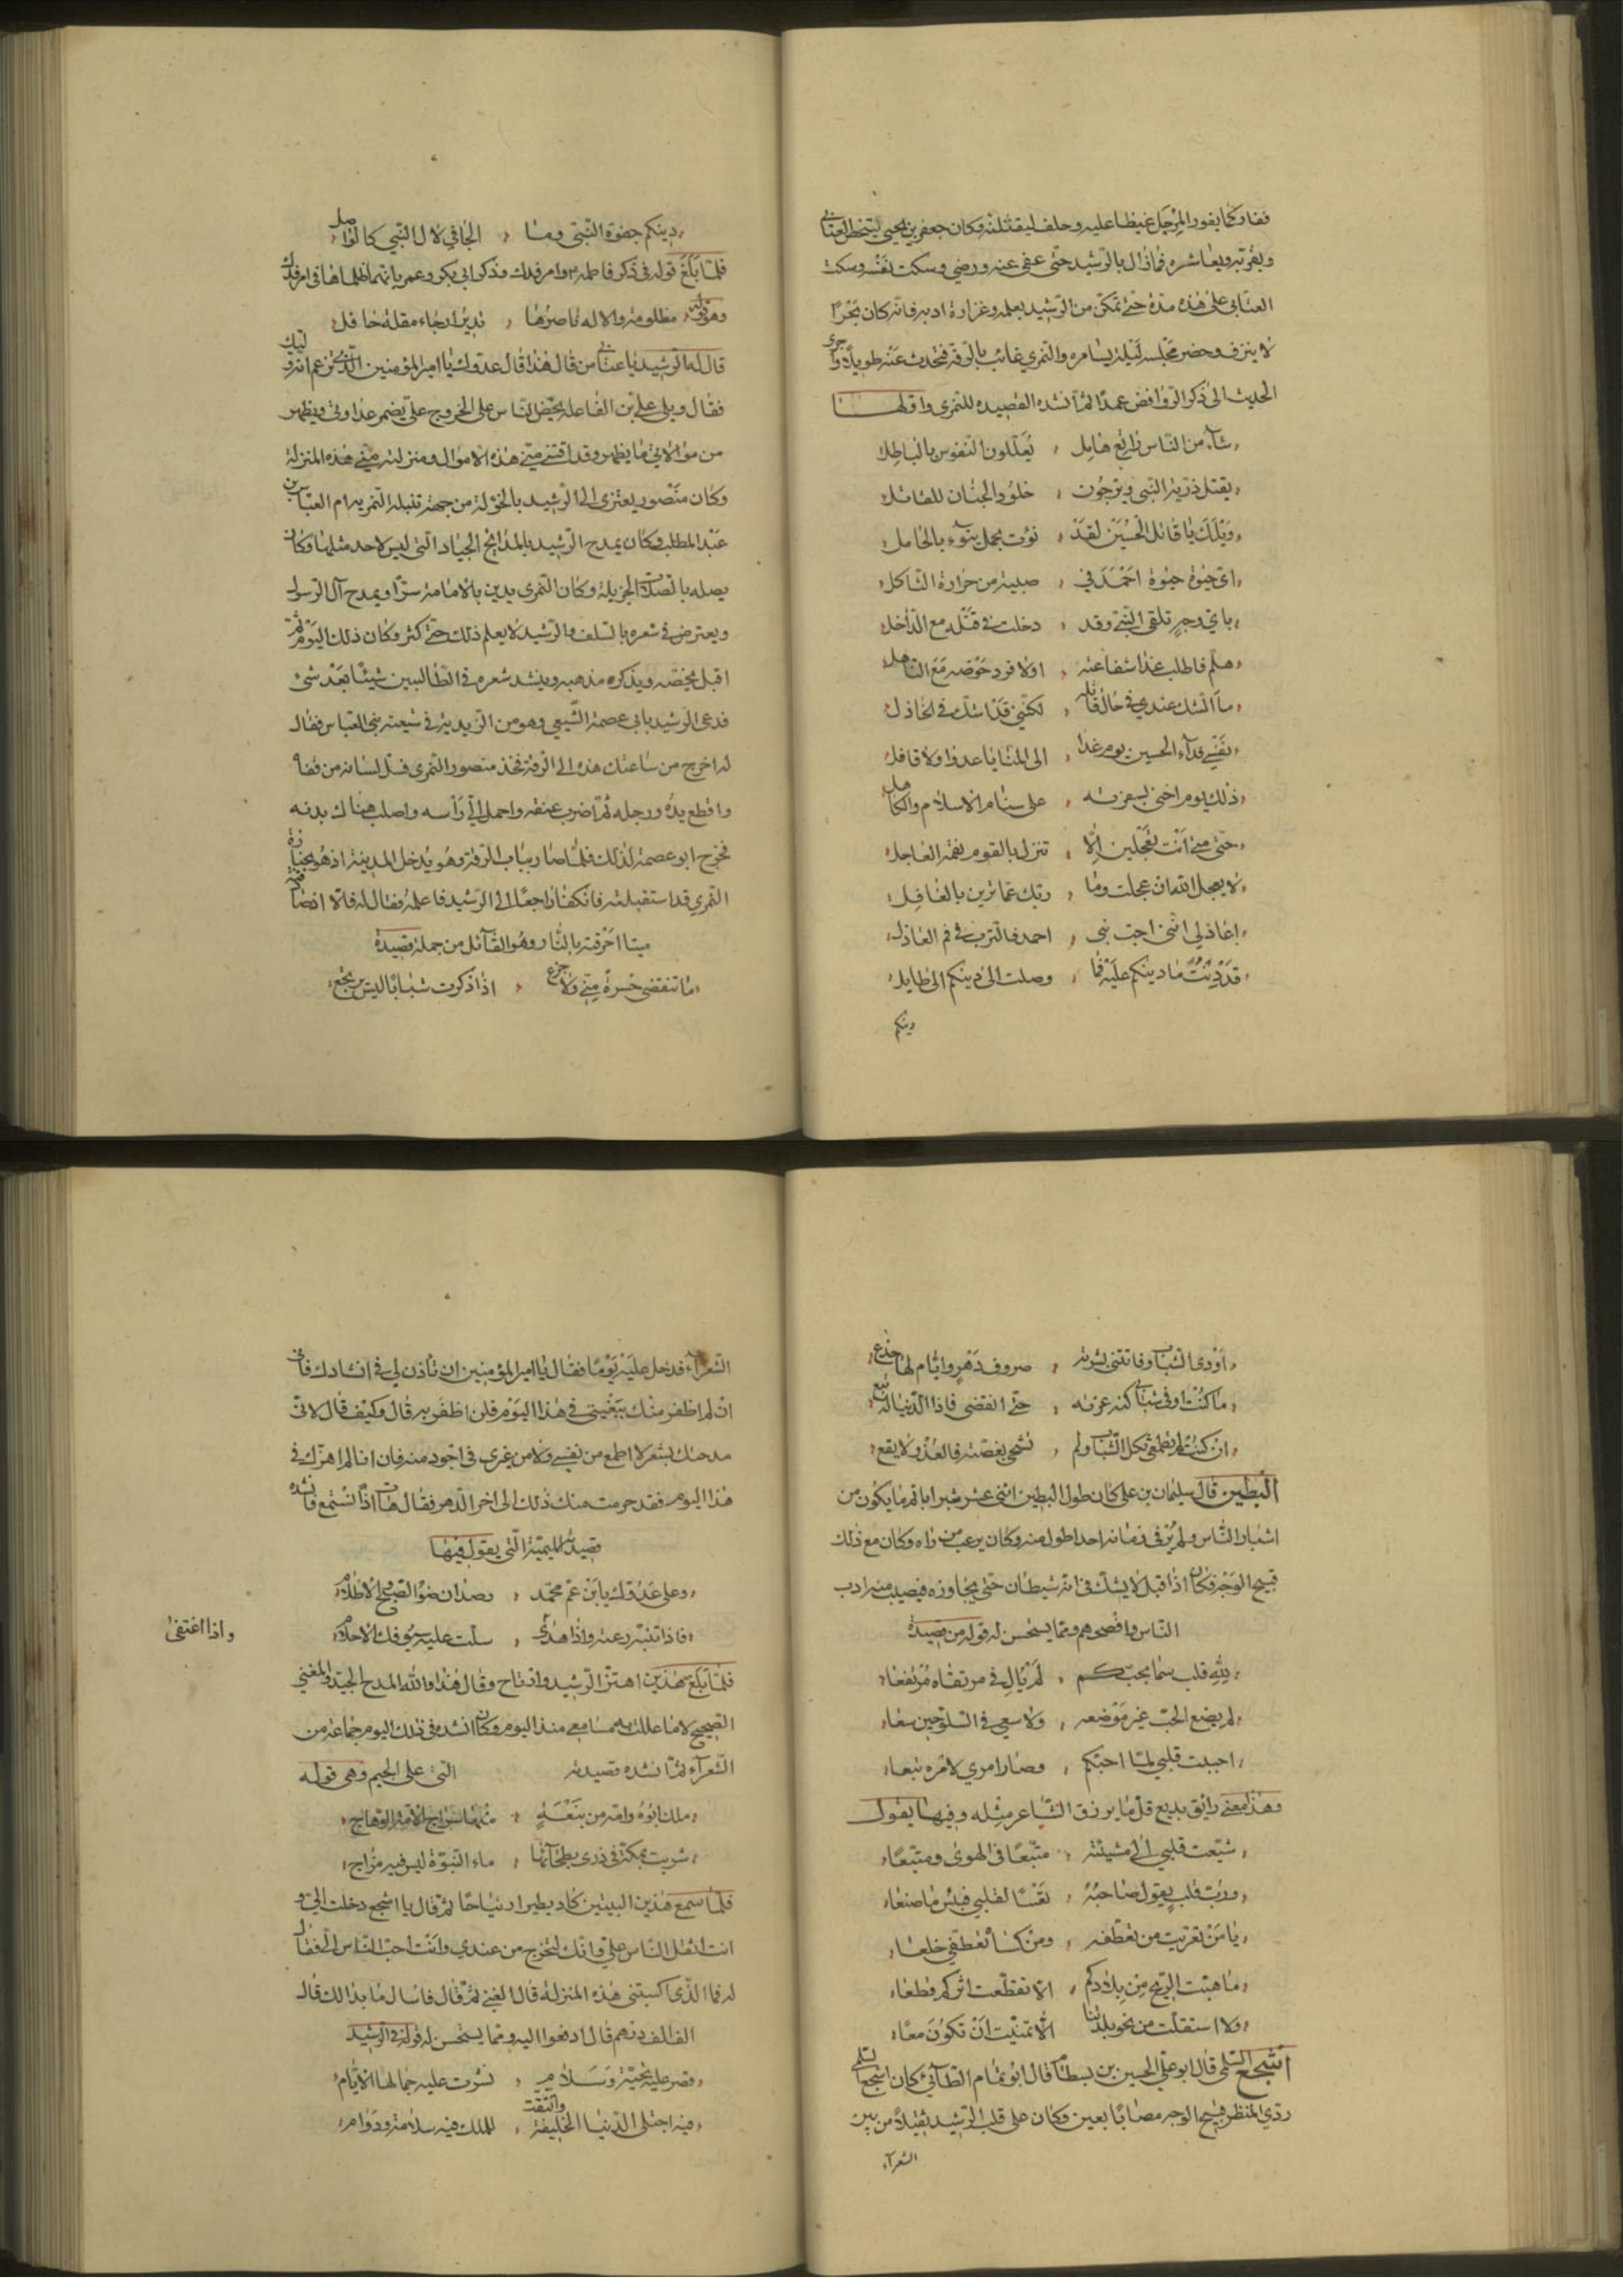 ففار كما يفور المرجل غيظا عليه وحلف ليقتلنه وكان جعفر بن يحيى يستحظي العتابي
ويقربه ويعاشره فما زال بالرشيد حتى عفى عنه ورضي وسكت نفسه وسكت
العتابي على هذه مدة حتى تمكن من الرشيد بعلمه وغزارة ادبه فانه كان بحرا
لا ينزف وحضر مجلسه ليلة يسامره والنمري غائب بالرقة فتحدث عنه طويلا وجرى
الحديث الى ذكر الروافض عمدا ثم انشده القصيدة للنمري واولها
شاء من الناس راتع هامل ، يعللون النفوس بالباطل
يقتل ذرية النبي ويرجون ، خلود الجنان للقاتل
ويلك يا قاتل الحسين لقد ، نؤت بحمل ينوء بالحامل
اي حبوة حبوت احمد في ، حبيبه من حرارة الثاكل
باي وجه تلقى النبي وقد ، دخلت في قتله مع الداخل
هلم فاطلب غدا شفاعته ، اولا فرد حوضه مع الناهل
ما الشك عندي في حال قاتله ، لكنني قد اشك في الخاذل
نفسي فداء الحسين يوم غدا ، الى المنايا غدو لا قافل
ذلك يوم اخنى بسفرته ، على سنام الاسلام والكاهل
حتى متى انت تعجلين الا ، تنزل بالقوم نقمة العاجل
لا يعجل الله ان عجلت وما ، ربك عما ترين بالغافل
اعاذلي انني احب بني ، احمد فالترب في فم العاذل
قد دنت ما دينكم عليه فما ، وصلت الى دينكم الى طايل
دينكم
دينكم جفوة النبي وما ، الجافي لال النبي كالواصل
فلما بلغ قوله في ذكر فاطمة وامر فدك وذكر ابي بكر وعمر بانهما ظلماها في امر فدك
وهو قوله مظلومة والاله ناصرها ، تدير ارجاء مقلة حافل
قال له الرشيد يا عتابي من قال هذا قال عدوك يا امير المؤمنين الذي تزعم انه وليك
فقال ويلي على ابن الفاعلة يحض الناس على الخروج علي يضمر عداوتي ويظهر
من موالاتي ما يظهر وقد اقتنى مني هذه الاموال ومنزلته مني هذه المنزلة
وكان منصور يعتزى الى الرشيد بالخؤلة من جهة نتيلة النمرية ام العباس بن
عبد المطلب وكان يمدح الرشيد بالمدائح الجياد التي ليس لاحد مثلها وكان
يصله بالصلات الجزيلة وكان النمري يدين بالامامة سرا ويمدح آل الرسول
ويعترض في شعره بالسلف والرشيد لا يعلم ذلك حتى كثر وكان ذلك اليوم ثم
اقبل يخصه ويذكره مذهبه وينشد شعره في الطالبيين شيئا بعد شئ
فدعى الرشيد بابي عصمة الشيعي وهو من الزيدية في شيعة بني العباس فقال
له اخرج من ساعتك هذه الى الرقة فخذ منصور النمري فسل لسانه من قفاه
واقطع يده ورجله ثم اضرب عنقه واحمل الي رأسه واصلب هناك بدنه
فخرج ابو عصمة لذلك فلما صار بباب الرقة وهو يدخل المدينة اذ هو بجنازة
النمري قد استقبلته فانكفأ راجعا الى الرشيد فاعلمه فقال له فالا اذ صادفته
ميتا احرقته بالنار وهو القائل من جملة قصيدة
ما تنقضي حسرة مني ولا جزع ، اذا ذكرت شبابا ليس يرتجع
اودى الشباب وفاتتني بشرته ، صروف دهر وايام لها خدع
ما كنت اوفي شبابي كنه عزته ، حتى انقضى فاذا الدنيا له تبع
ان كنت لم تطعمي ثكل الشباب ولم ، تشجي بغصته فالعذر لا يقع
البطين قال سليمان بن علي كان طول البطين اثنى عشر شبرا باتم ما يكون من
اشبار الناس ولم ير في زمانه احد اطول منه وكان يرعب من راه وكان مع ذلك
قبيح الوجه فكان اذا اقبل لا يشك في انه شيطان حتى يجاوزه فيصيب منه ادب
الناس وافصحهم ومما يستحسن له قوله من قصيدة
لله قلب سما بحبكم ، لم يال في مرتقاه مرتفعا
لم يضع الحب غير موضعه ، ولا سعى في السلو حين سعا
احببت قلبي لما احبكم ، وصار امري لامره تبعا
وهذا معنى رايق بديع قل ما يرزق الشاعر مثله وفيها يقول
شيعت قلبي الى مشيئته ، متبعا في الهوى ومتبعا
ورب قلب يقول صاحبه ، تعسا لقلبي فبئس ما صنعا
يا من تعريت من تعطفه ، ومن كسا تعطفي خلعا
ما هبت الريح من بلادكم ، الا تقطعت اثركم قطعا
ولا استقلت من نحو بلدتنا ، الا تمنيت ان تكون معا
اشجع السلمي قال ابو علي الحسين بن بسطام قال ابو تمام الطائي كان اشجع السلمي
ردي المنظر قبيح الوجه مصابا بعين وكان على قلب الرشيد ثقيلا من بين
الشعراء
الشعراء فدخل عليه يوما فقال يا امير المؤمنين ان تأذن لي في انشادك فاني
ان لم اظفر منك ببغيتي في هذا اليوم فلن اظفر به قال وكيف قال لاني
مدحتك بشعر لا اطمع من نفسي ولا من غيري في اجود منه فان انا لم اهزك في
هذا اليوم فقد حرمت منك ذلك الى اخر الدهر فقال هات اذا نسمع فانشده
قصيدته الميمية التي يقول فيها
وعلى عدوك يا بن عم محمد ، رصدان ضوء الصبح والاظلام
فاذا تنبه رعته واذا هدى ، سلت عليه سيوفك الاحلام
واذا اغتفى
فلما بلغ هذين اهتز الرشيد وارتاح وقال هذا والله المدح الجيد والمعنى
الصحيح لا ما عللت به مسامعي منذ اليوم وكان انشده في ذلك اليوم جماعة من
الشعراء ثم انشده قصيدته التي على الجيم وهي قوله
ملك ابوه وامه من نبعة ، منها سراج الامة الوهاج
شربت بمكة في ذرى بطحائها ، ماء النبوة ليس فيه مزاج
فلما سمع هذين البيتين كاد يطير ارتياحا ثم قال يا اشجع دخلت الي و
انت اثقل الناس علي وانك لتخرج من عندي وانت احب الناس الي فقال
له فما الذي اكسبتني هذه المنزلة قال الغنى ثم قال فاسال ما بدا لك قال
الف الف درهم قال ادفعوا اليه ومما يستحسن له قوله في الرشيد
قصر عليه تحية وسلام ، نشرت عليه جمالها الايام
فيه اجتلى الدنيا الخليفة والتقت ، للملك فيه سلامة ودوام